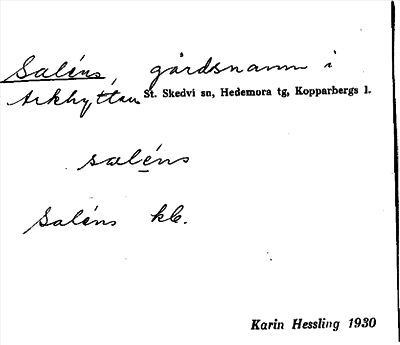 Saléns, gårdsnamn i
Arkhyttan St. Skedvi sn, Hedemora tg, Kopparbergs l.
saléns
Saléns kb.
Karin Hessling 1930